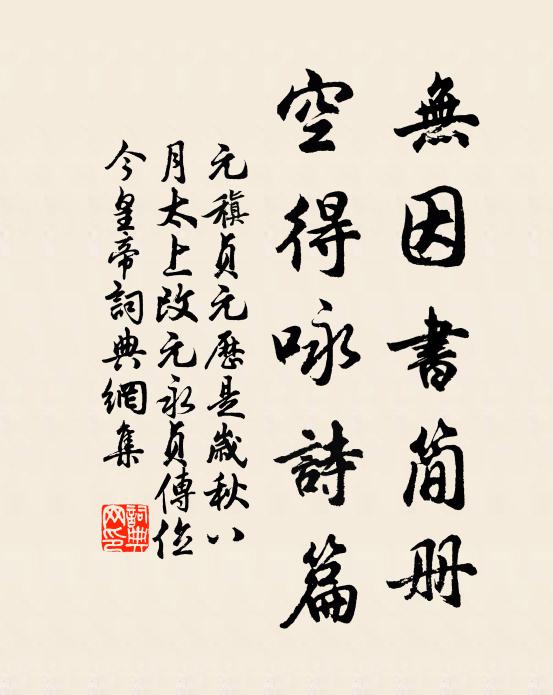 無因書簡冊
空得咏詩篇
元稹貞元歷是歳秋八
月太上改元永貞傳位
今皇帝詞典網集
詞典网印